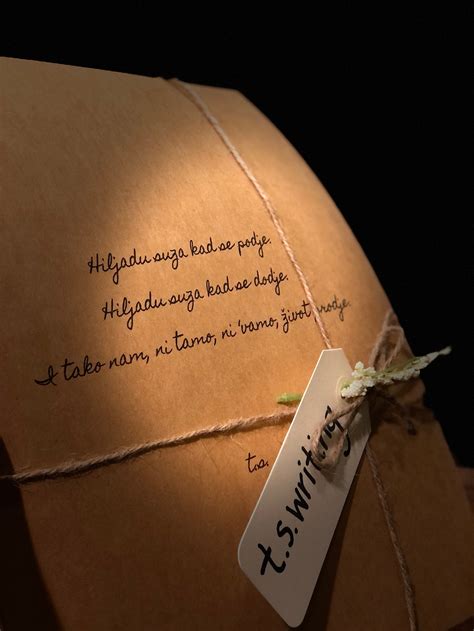 Hiljadu suza kad se podje.
Hiljadu suza kad se dodje.
I tako nam, ni tamo, ni 'vamo, život prodje.
t.s.
t.s.writing